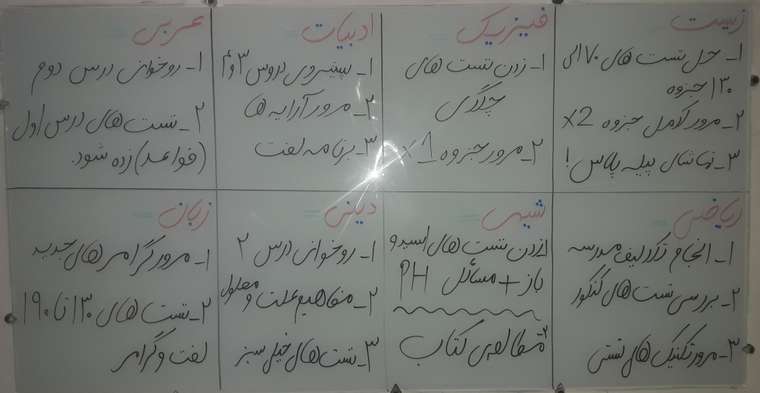 زیست
۱- حل تست های ۷۰ الی
۱۳۰ جزوه
۲- مرور کامل جزوه 2×
۳- نهائی پله پلاس!
فیزیک
۱- زدن تست های
چگالی
۲- مرور جزوه 1×
ادبیات
۱- پیشروی دروس ۳ و ۴
۲- مرور آرایه ها
۳- برنامه لغت
عربی
۱- روخوانی درس دوم
۲- تست های درس اول
(قواعد) زده شود.
ریاضی
۱- انجام تکالیف مدرسه
۲- بررسی تست های کنکور
۳- مرور تکنیک های تستی
شیمی
۱- زدن تست های اسید و
باز + مسائل PH
۲- مطالعه ی کتاب
دینی
۱- روخوانی درس ۲
۲- مفاهیم علت و معلول
۳- تست های خیلی سبز
زبان
۱- مرور گرامر های جدید
۲- تست های ۱۳۰ تا ۱۹۰
لغت و گرامر